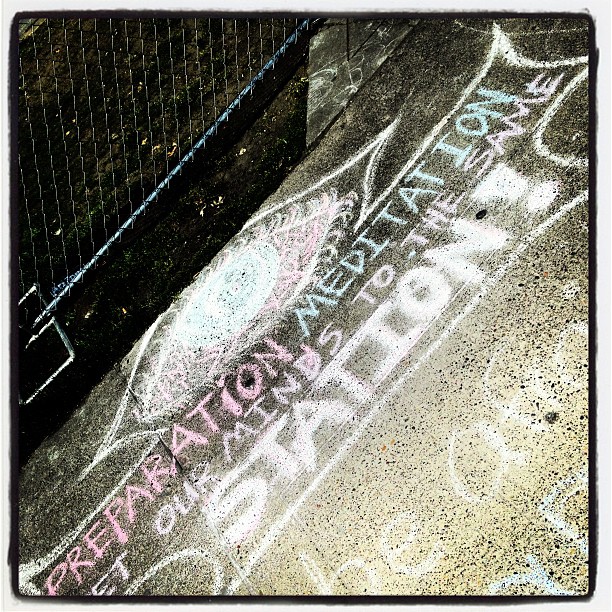 PREPARATION MEDITATION
ET OUR MINDS TO THE SAME
STATION
be